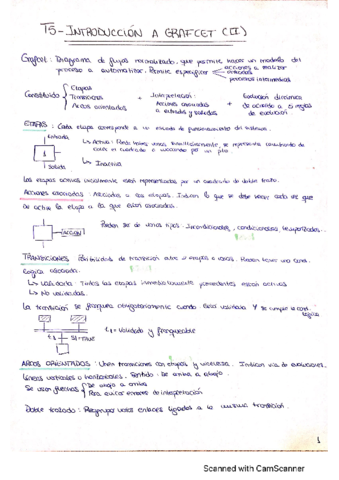 T5-INTRODUCCIÓN A GRAFCET (I)
Grafcet: Diagrama de flujos normalizado, que permite hacer un modelo del
proceso a automatizar. Permite especificar acciones a realizar
procesos intermedios
Constituido Etapas
Transiciones
Arcos orientados
+ Interpretación:
Acciones asociadas
a entradas y salidas
+ Evolución dinámica
de acuerdo a 5 reglas
de evolución
ETAPAS: Cada etapa corresponde a un estado de funcionamiento del sistema.
Entrada
1
Salida
↳ Activa:
↳ Inactiva
Las etapas activas inicialmente están representadas por un cuadrado de doble trazo.
ACCIONES ASOCIADAS: Asociadas a las etapas. Indican lo que se debe hacer cada vez que
se active la etapa a la que están asociadas.
ACCIÓN
Pueden ser de varios tipos: Incondicionales, condicionales, temporizadas...
TRANSICIONES: Posibilidades de transición entre etapas o varias. Pueden tener una
lógica asociada.
↳ Validada: Todas las etapas inmediatamente precedentes están activas
↳ No validada.
La transición se franquea obligatoriamente cuando está validada Y se cumple la
lógica
t1 = Validada y franqueable
ARCOS ORIENTADOS: Unen transiciones con etapas y viceversa. Indican vía de evoluciones.
Líneas verticales o horizontales. Sentido: De arriba a abajo.
Se usan flechas De abajo a arriba
Para evitar errores de interpretación
Doble trazado: Reagrupar varios enlaces ligados a la misma transición.
1
Scanned with CamScanner